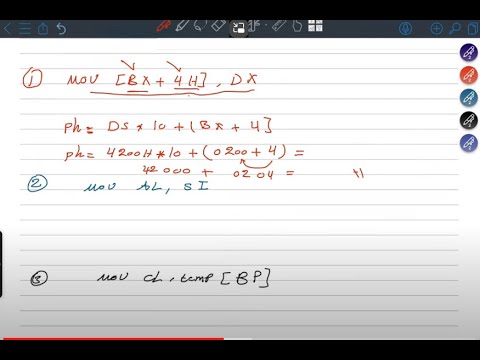 ① MOV [BX + 4H], DX
ph = DS * 10 + [BX + 4]
ph = 4200H * 10 + (0200 + 4) =
42000 + 0204 =
② MOV AL, SI
③ MOV CL, temp [BP]